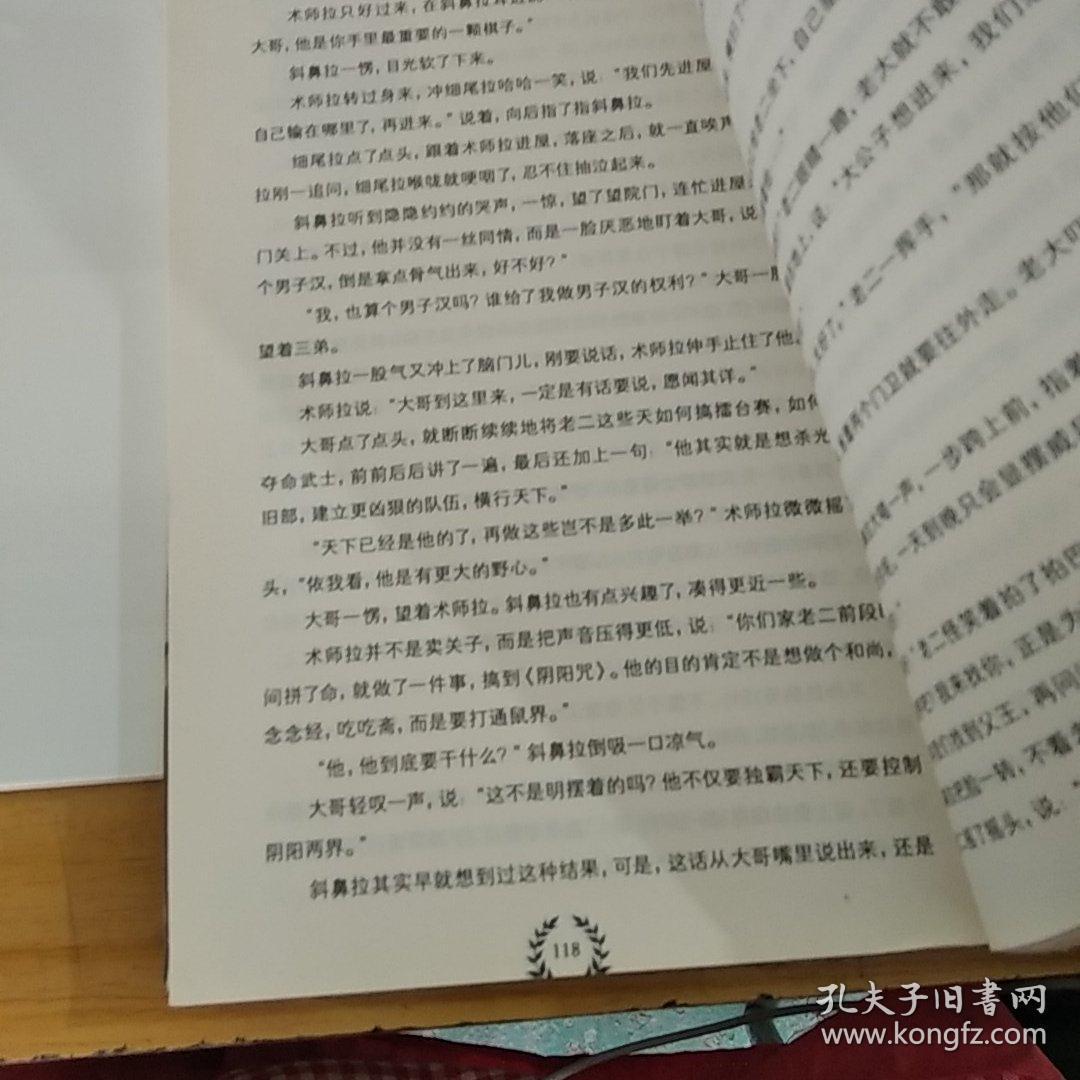 术师拉只好过来，在斜鼻拉耳边
大哥，他是你手里最重要的一颗棋子。”
斜鼻拉一愣，目光软了下来。
术师拉转过身来，冲细尾拉哈哈一笑，说：“我们先进屋
自己输在哪里了，再进来。”说着，向后指了指斜鼻拉。
细尾拉点了点头，跟着术师拉进屋，落座之后，就一直唉声
拉刚一追问，细尾拉喉咙就哽咽了，忍不住抽泣起来。
斜鼻拉听到隐隐约约的哭声，一惊，望了望院门，连忙进屋
门关上。不过，他并没有一丝同情，而是一脸厌恶地盯着大哥，说
个男子汉，倒是拿点骨气出来，好不好？”
“我，也算个男子汉吗？谁给了我做男子汉的权利？”大哥一
望着三弟。
斜鼻拉一股气又冲上了脑门儿，刚要说话，术师拉伸手止住了他。
术师拉说：“大哥到这里来，一定是有话要说，愿闻其详。”
大哥点了点头，就断断续续地将老二这些天如何搞擂台赛，如何
夺命武士，前前后后讲了一遍，最后还加上一句：“他其实就是想杀光
旧部，建立更凶狠的队伍，横行天下。”
“天下已经是他的了，再做这些岂不是多此一举？”术师拉微微摇
头，“依我看，他是有更大的野心。”
大哥一愣，望着术师拉。斜鼻拉也有点兴趣了，凑得更近一些。
术师拉并不是卖关子，而是把声音压得更低，说：“你们家老二前段
间拼了命，就做了一件事，搞到《阴阳咒》。他的目的肯定不是想做个和尚，
念念经，吃吃斋，而是要打通鼠界。”
“他，他到底要干什么？”斜鼻拉倒吸一口凉气。
大哥轻叹一声，说：“这不是明摆着的吗？他不仅要独霸天下，还要控制
阴阳两界。”
斜鼻拉其实早就想到过这种结果，可是，这话从大哥嘴里说出来，还是
118
老大就不敢
说：“大公子想进来，我们
老二一挥手，“那就按他们
两个门卫就要往外走。老大
一声，一步跨上前，指着
一天到晚只会显摆威风
老二怪笑着拍了拍巴
我来找你，正是为
放到父王，再问
把脸一转，不看
摇头，说：“
孔夫子旧书网
www.kongfz.com